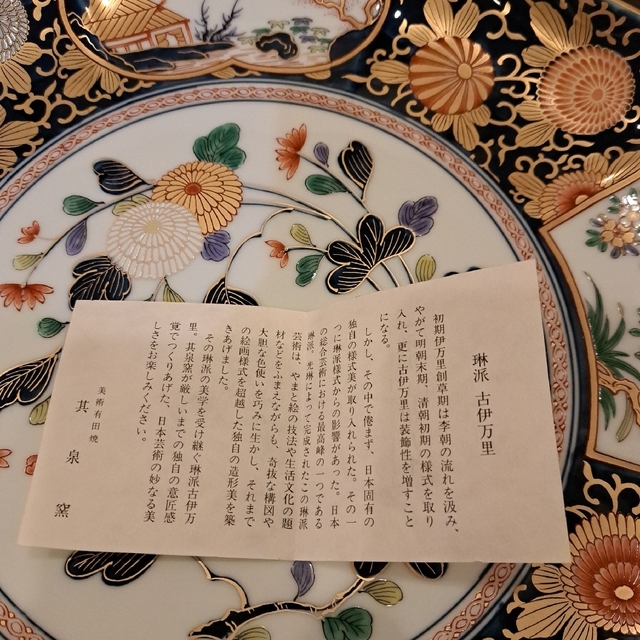 琳派 古伊万里
初期伊万里創草期は李朝の流れを汲み、
やがて明朝末期、清朝初期の様式を取り
入れ、更に古伊万里は装飾性を増すこと
になる。
しかし、その中で倦まず、日本固有の
独自の様式美が取り入れられた。その一
つに琳派様式からの影響があった。日本
の総合芸術における最高峰の一つである
琳派。光琳によって完成されたこの琳派
芸術は、やまと絵の技法や生活文化の題
材などをふまえながらも、奇抜な構図や
大胆な色使いを巧みに生かし、それまで
の絵画様式を超越した独自の造形美を築
きあげました。
その琳派の美学を受け継ぐ、琳派古伊万
里。其泉窯が厳しいまでの独自の意匠感
覚でつくりあげた、日本芸術の妙なる美
しさをお楽しみください。
美術有田焼
其泉窯